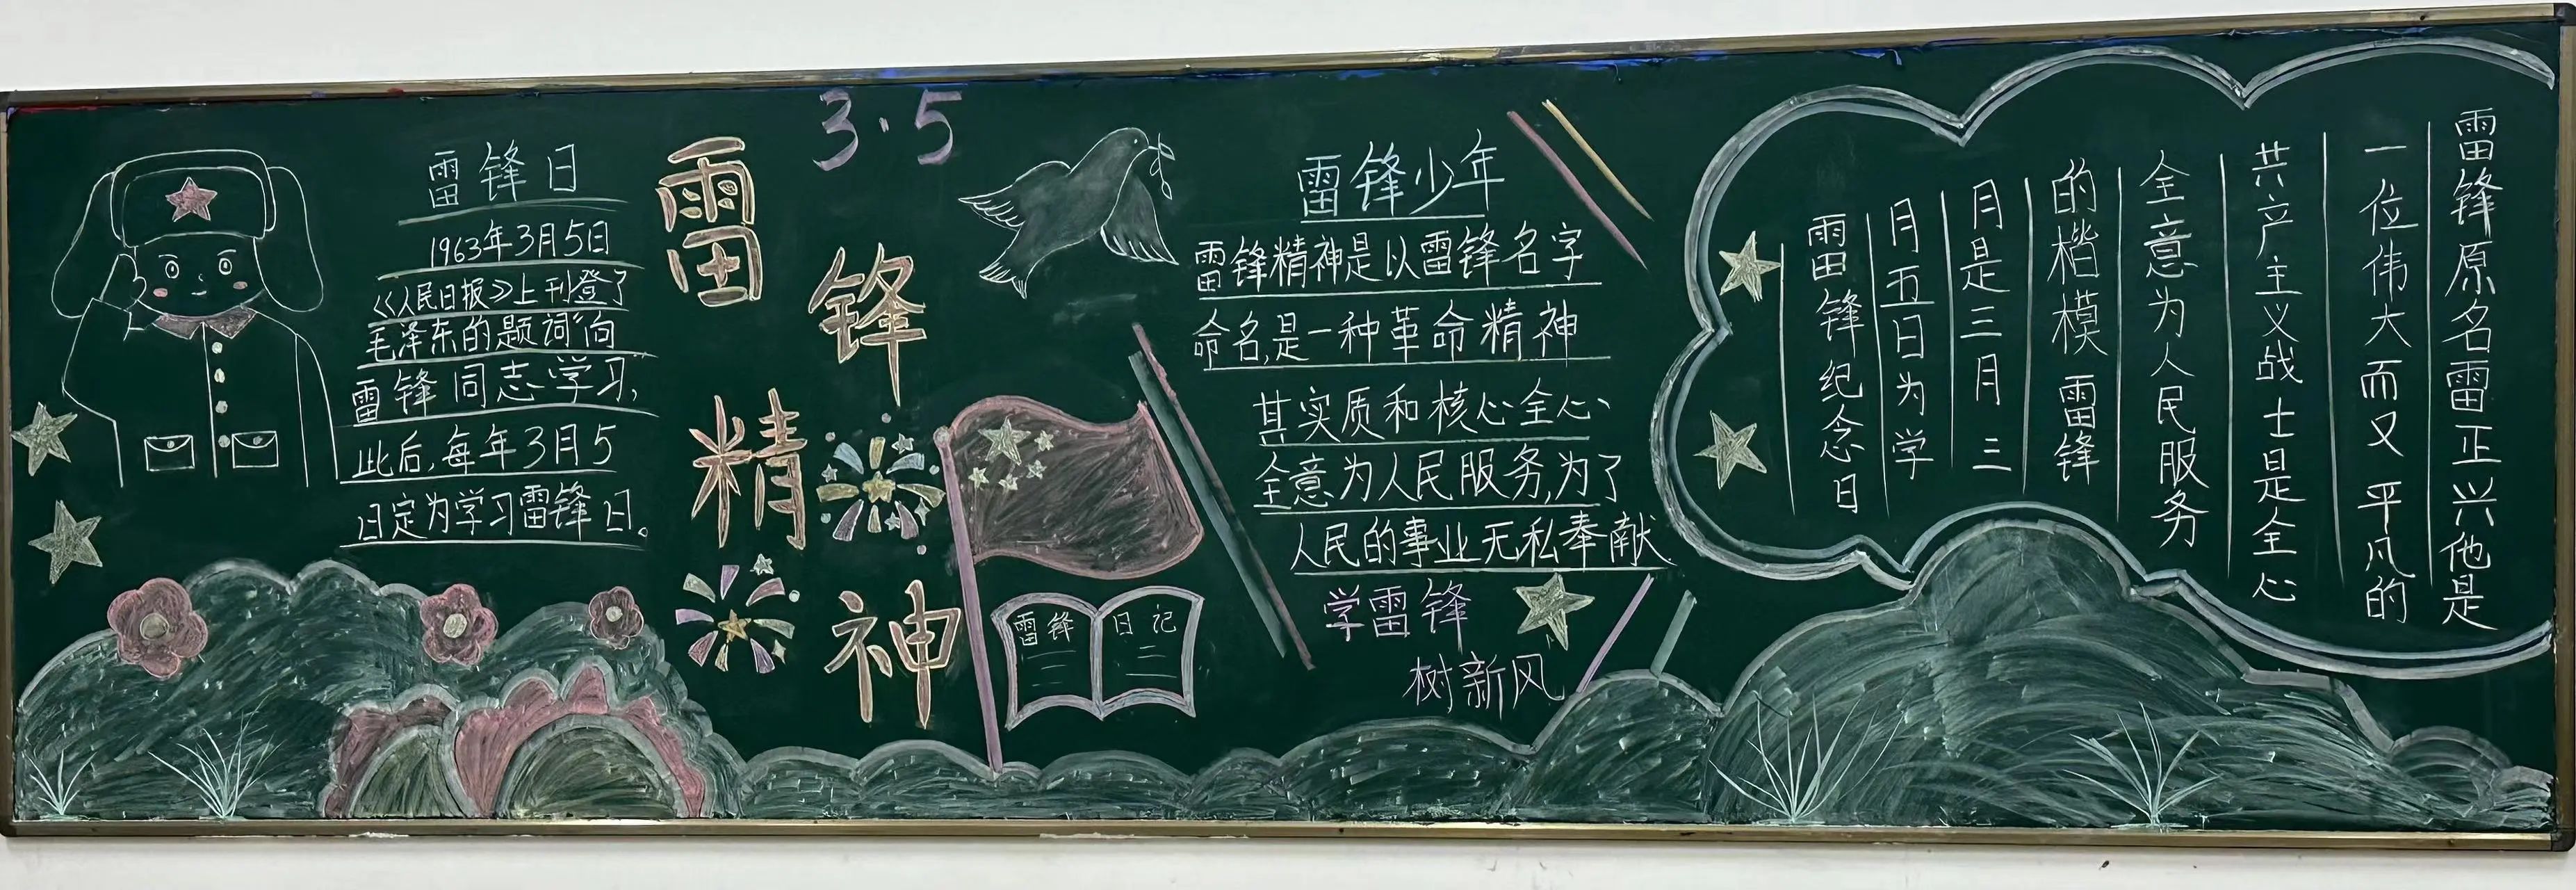 雷锋日
1963年3月5日
《人民日报》上刊登了
毛泽东的题词"向
雷锋同志学习"
此后,每年3月5
日定为学习雷锋日。
3·5
雷锋精神
雷锋日记
雷锋少年
雷锋精神是以雷锋名字
命名,是一种革命精神
其实质和核心全心、
全意为人民服务,为了
人民的事业无私奉献
学雷锋
树新风
雷锋原名雷正兴他是
一位伟大而又平凡的
共产主义战士是全心
全意为人民服务
的楷模雷锋
月是三月三
月五日为学
雷锋纪念日